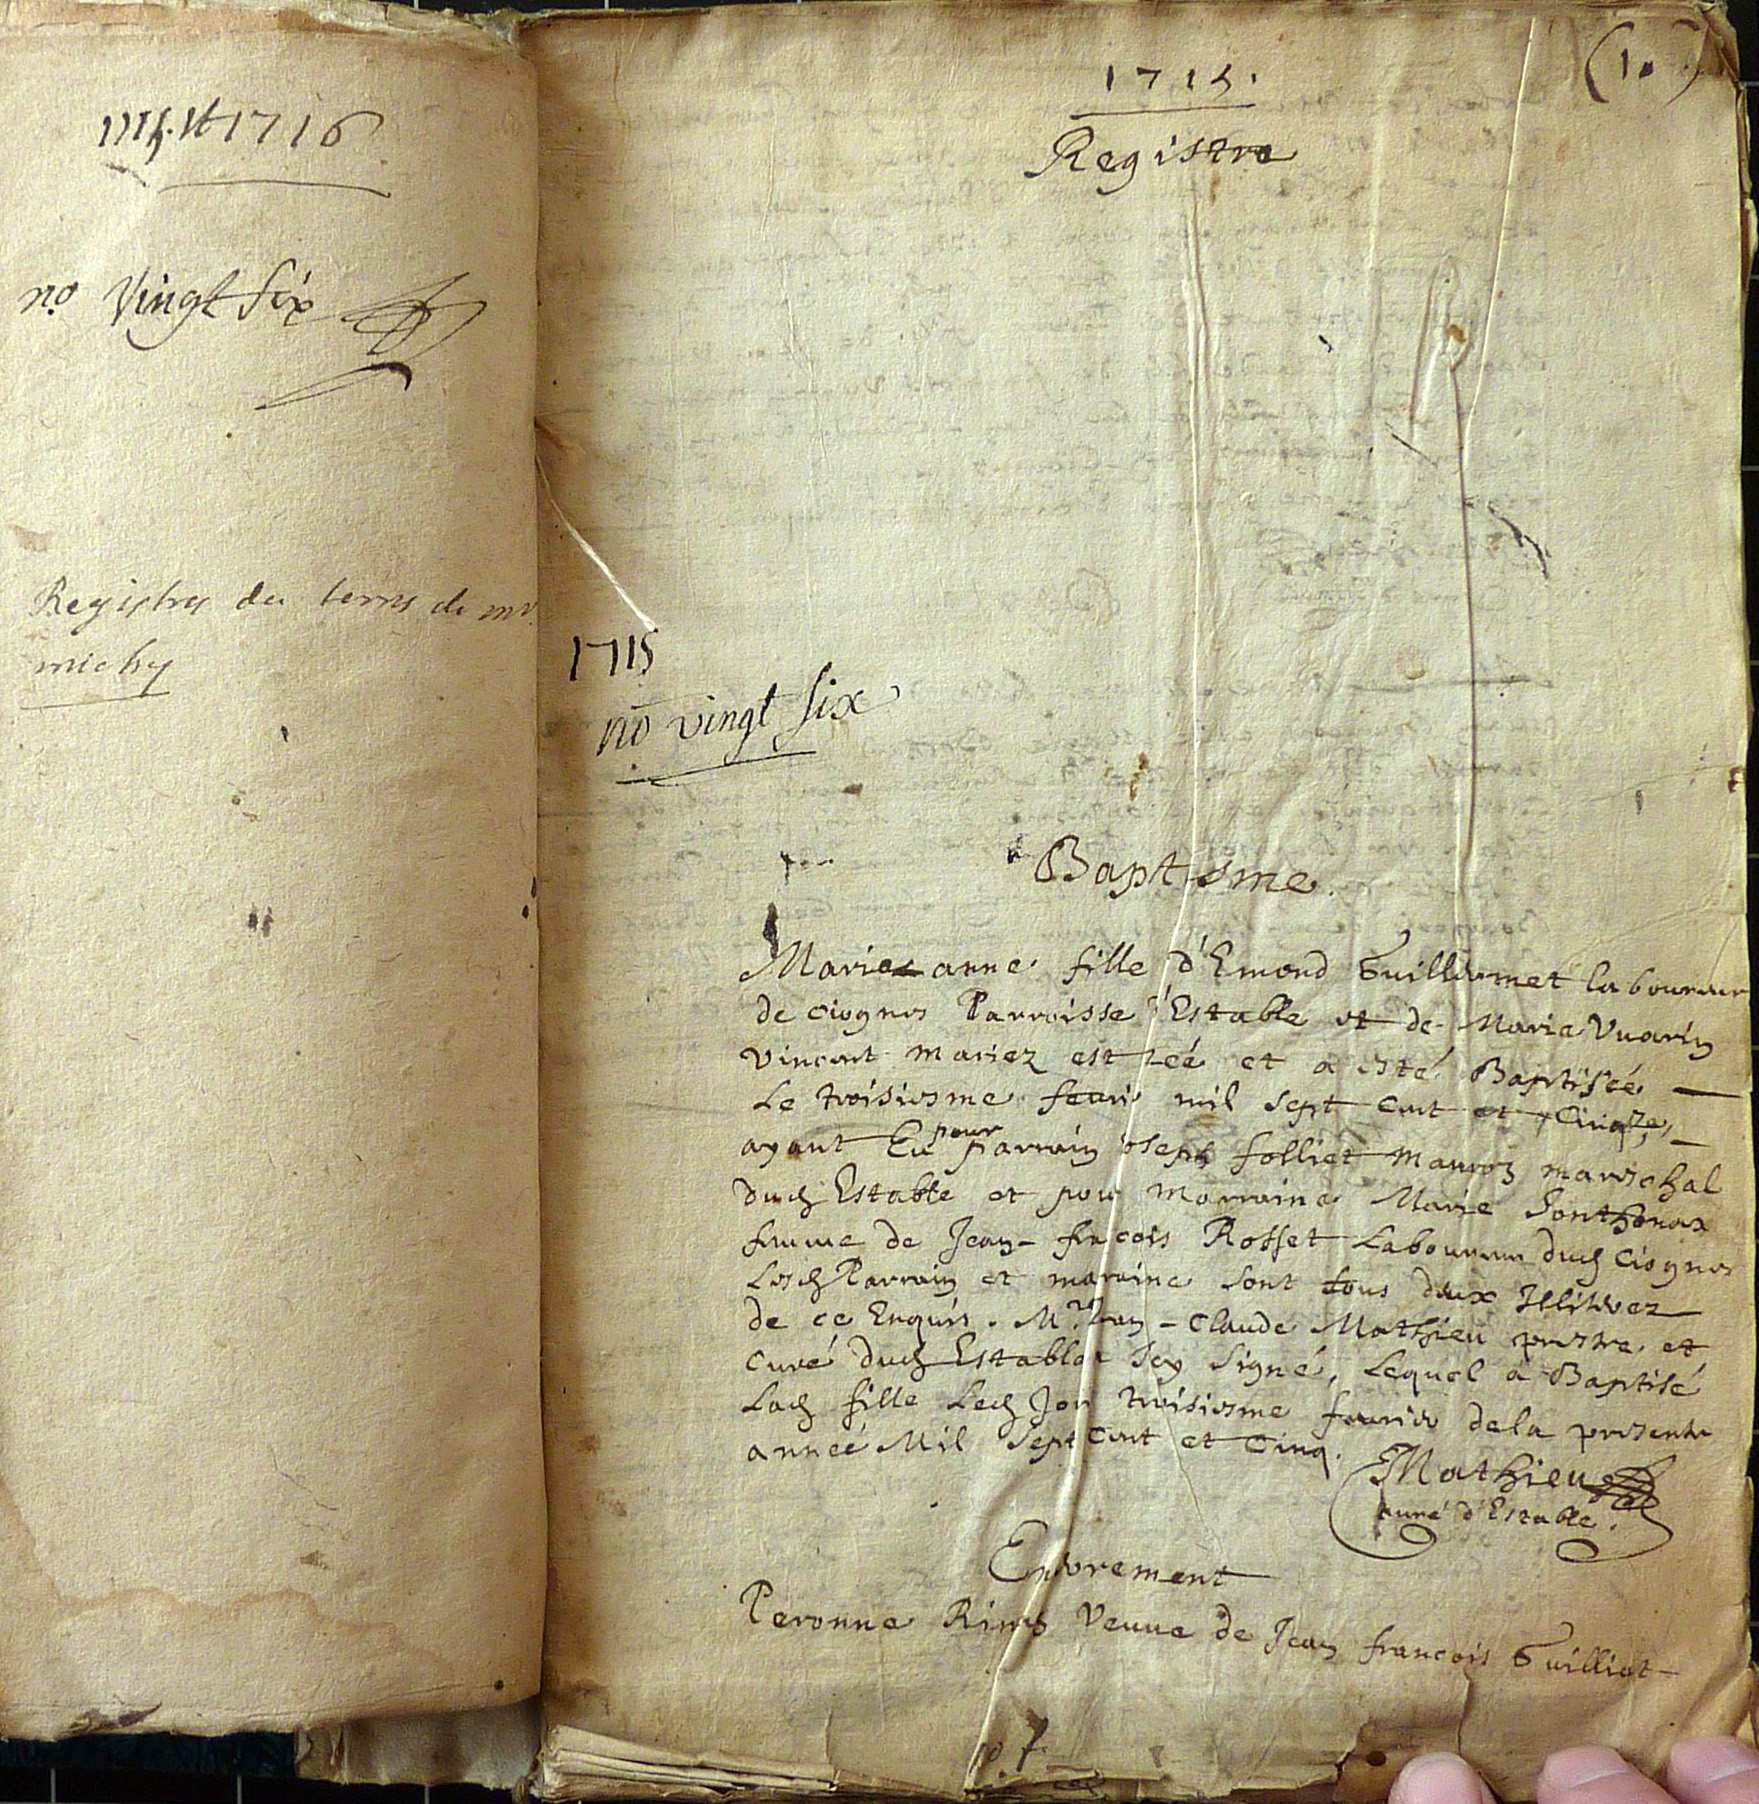 1715. et 1716
no. Vingt six
Registres du tems de mr.
michy
1715.
Registre
1715
no vingt six
Baptesme.
Marie anne fille d'Emond Guillermet laboureur
de Ciognes Parroisse d'Estable et de Marie Vuarin
Vincent mariez est née et a esté Baptisée
Le troisiesme feuri mil sept cent et
ayant Eu pour parrain Joseph folliet maurox mareschal
dud Estable et pour marraine Marie Sonthonax
femme de Jean-fracois Rosset Laboureur dud Ciognes
Lesd Parrain et maraine sont tous deux Illiterez
de ce Enquis. Mre Jean-Claude Mathieu prestre et
Curé dud Estable Icy Signé, Lequel a Baptisé
Lad fille Led Jor troisiesme feurier dela presente
anneé Mil Sept Cent et Cinq.
Mathieu
curé d'Estable.
Enterrement
Peronne Veuue de Jean francois Guilliot